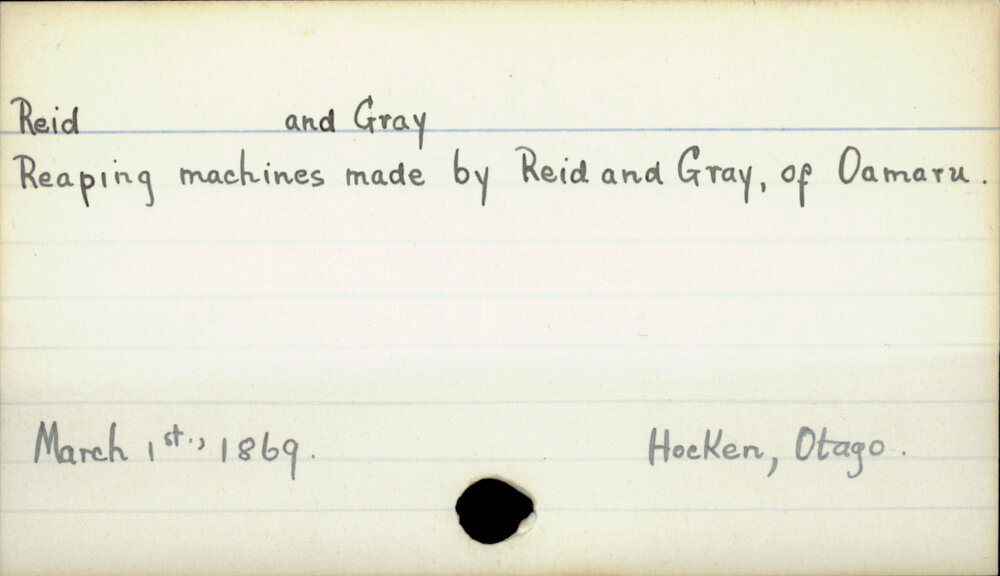 Reid and Gray
Reaping machines made by Reid and Gray, of Oamaru.
March 1st., 1869. Hocken, Otago.